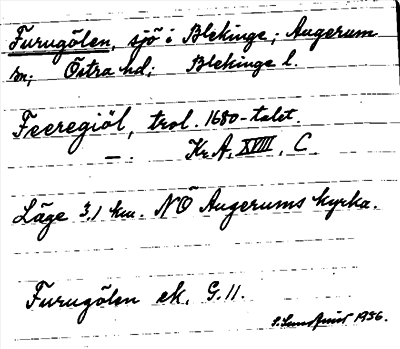 Furugölen, sjö i Blekinge; Augerum
sn; Östra hd; Blekinge l.
Feeregiöl, trol. 1680-talet.
— . Kr. A, XVIII, C
Läge 3,1 km. NÖ Augerums kyrka.
Furugölen ek. G. 11.
S. Lundqvist 1956.